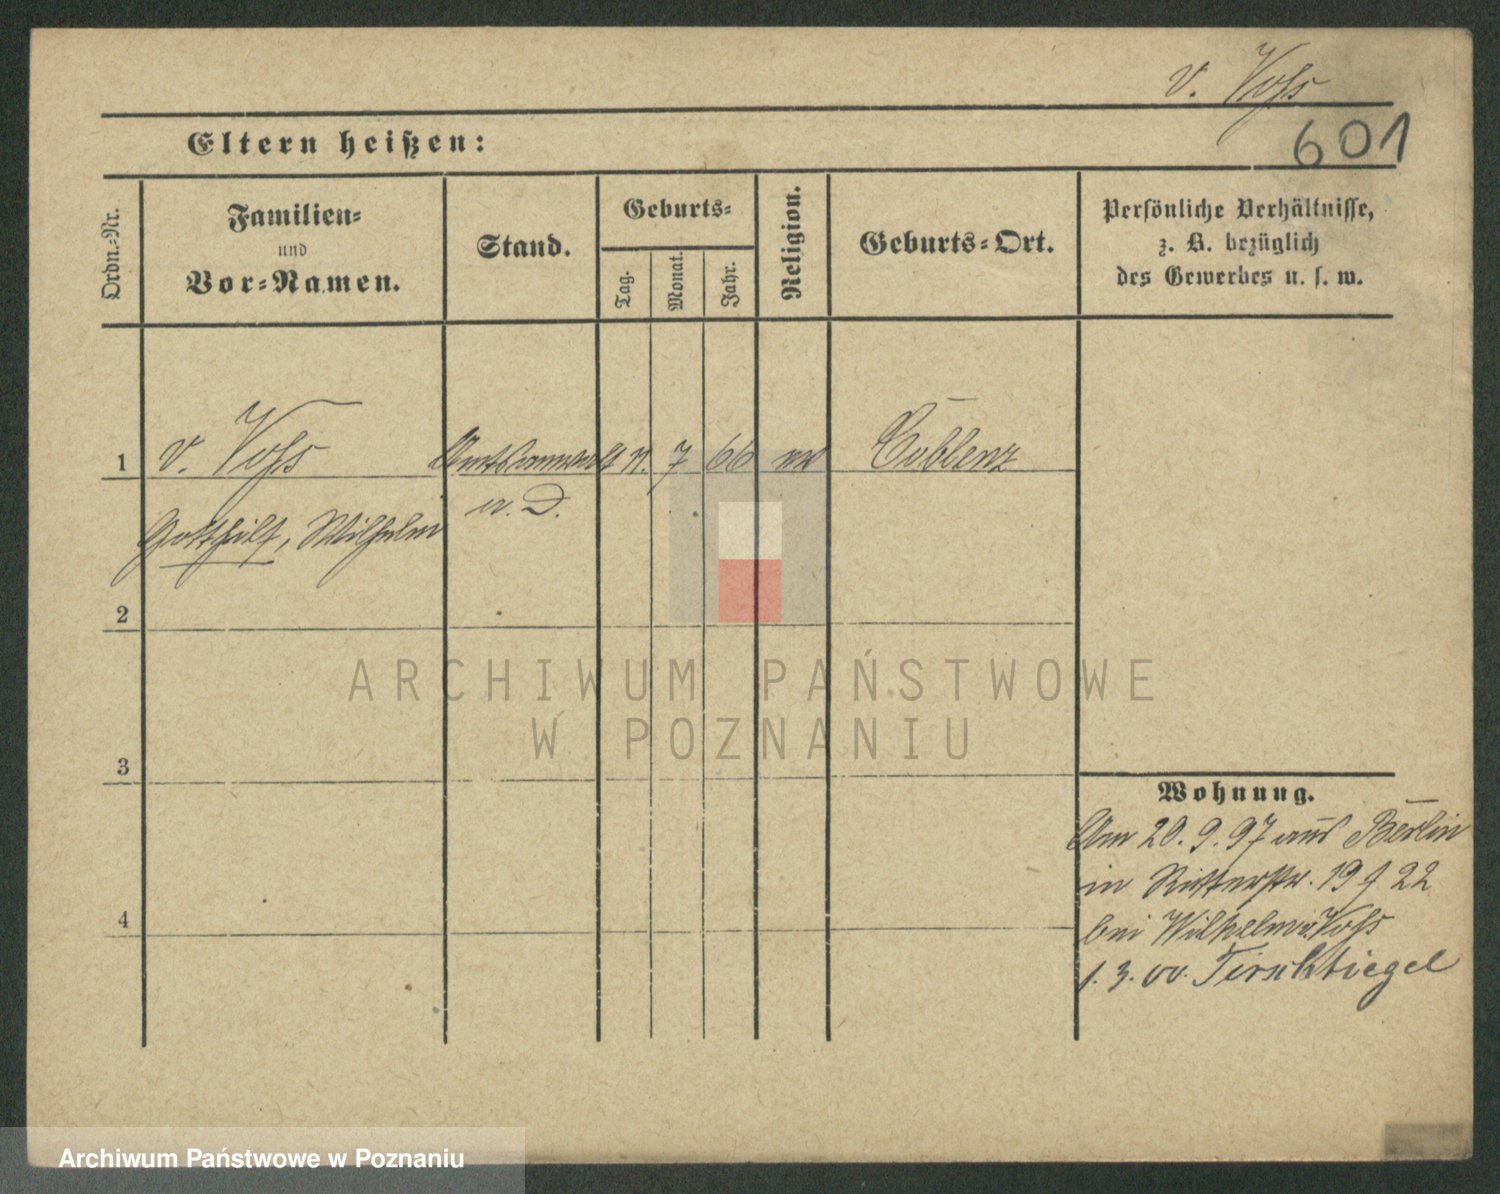 v. Voss
601
Eltern heißen:
Ordn.-Nr.
Familien-
und
Vor-Namen.
Stand.
Geburts-
Tag.
Monat.
Jahr.
Religion.
Geburts-Ort.
Persönliche Verhältnisse,
z. B. bezüglich
des Gewerbes u. s. w.
1 v. Voss Amtsanwalt 11. 7 66 ev Coblenz
a. D.
Gotthilf, Wilhelm
2
3
4
Wohnung.
Am 20. 9. 97 aus Berlin
in Ritterstr. 19 / 22
bei Wilhelm v. Voss
1. 3. 00. Tirschtiegel
ARCHIWUM PAŃSTWOWE
W POZNANIU
Archiwum Państwowe w Poznaniu